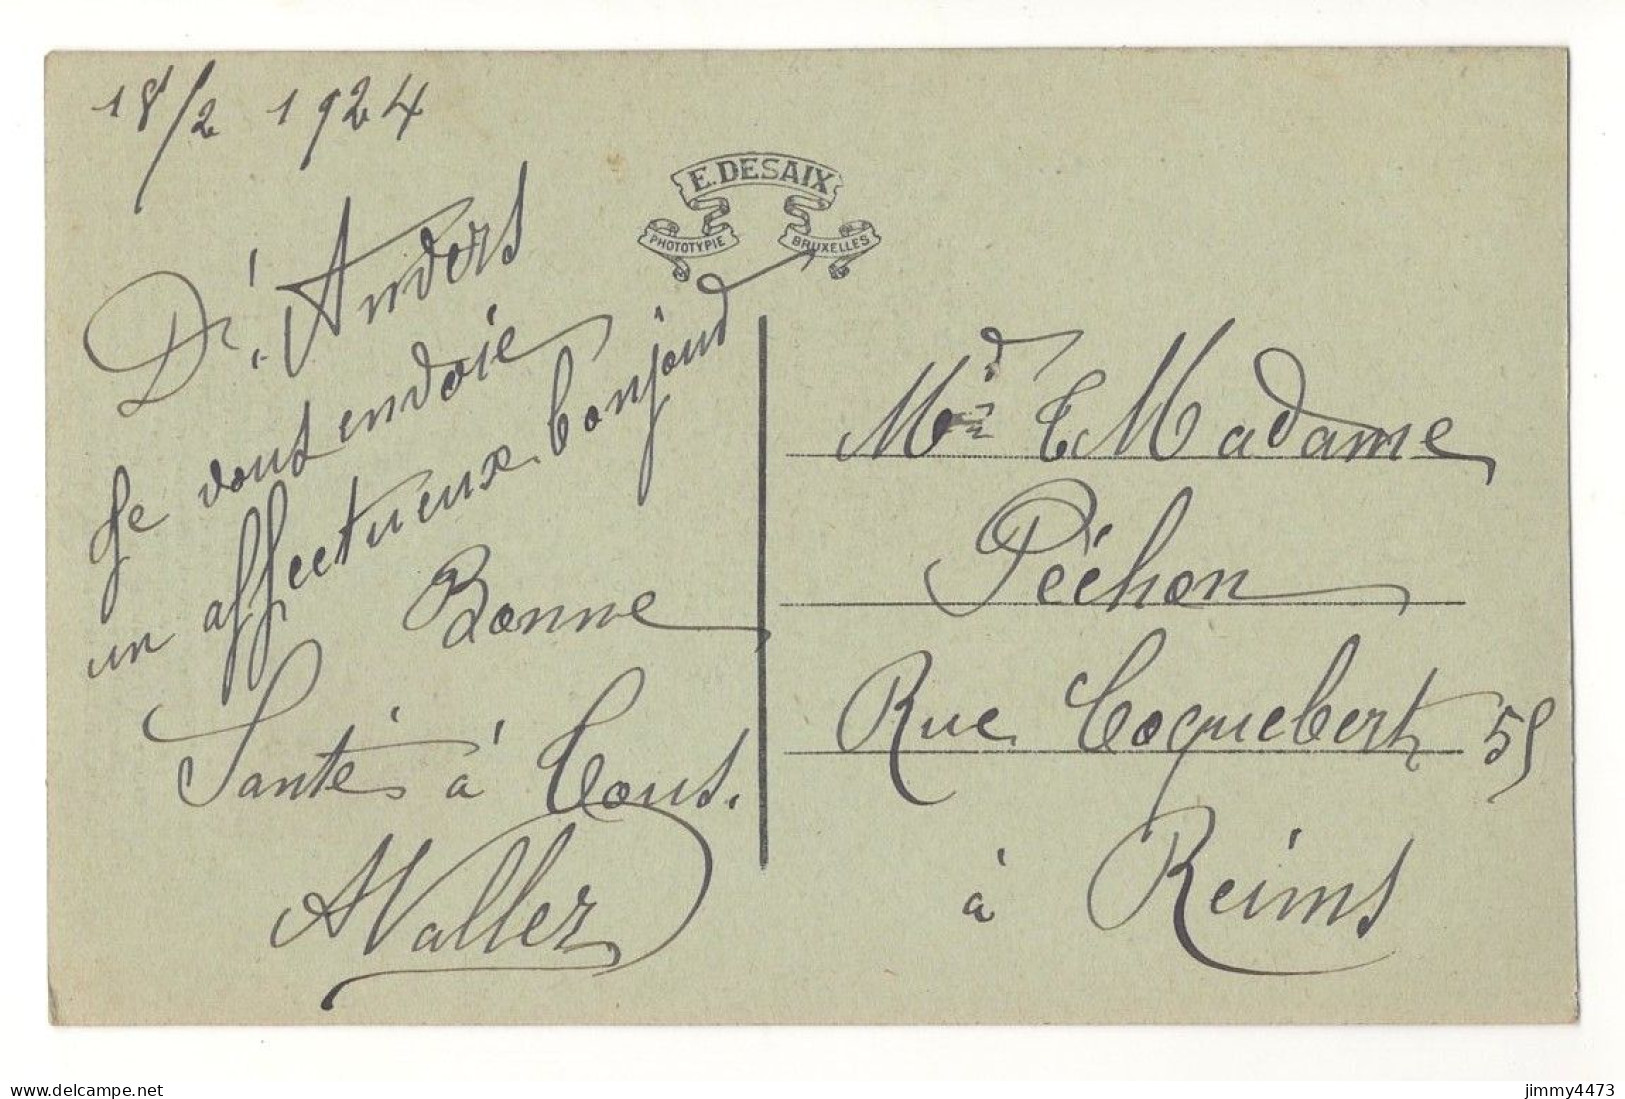 18/2 1924
E. DESAIX
PHOTOTYPIE BRUXELLES
D'Anvers
Je vous envoie
un affectueux bonjour
Bonne
Santés à Tous.
AVallez
Mr & Madame
Péchon
Rue Coquebert 55
à Reims
www.delcampe.net
jimmy4473